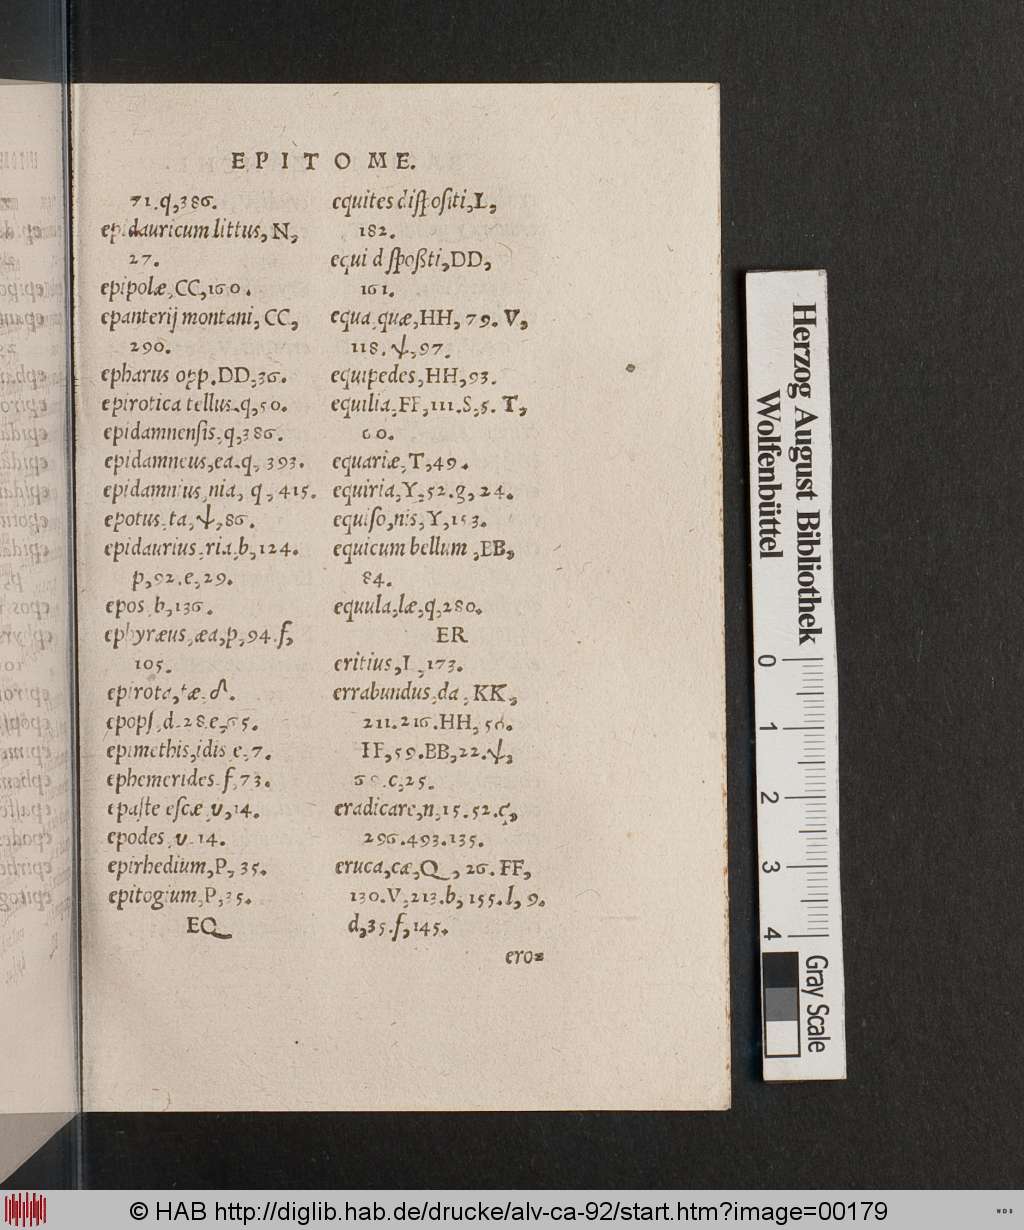 EPITOME.
71.q,386.
epidauricum littus, N,
27.
epipolæ, CC,160.
epanterij montani, CC,
290.
epharus opp. DD,36.
epirotica tellus.q,50.
epidamnensis,q,386.
epidamneus,ea.q, 393.
epidamnius,nia, q, 415.
epotus,ta,ψ,86.
epidaurius,ria,b,124.
p,92.e,29.
epos,b,136.
ephyræus,æa,p,94.f,
105.
epirota,tæ,
epops,d.28.e,65.
epimethis,idis,e,7.
ephemerides.f,73.
epaste escæ,v,14.
epodes,v.14.
epirhedium,P, 35.
epitogium,P,35.
EQ
equites dispositi,L,
182.
equi d spoßti,DD,
161.
equa,quæ,HH, 79. V,
118.ψ,97.
equipedes,HH,93.
equilia,FF,111.S,5. T,
60.
equariæ,T,49.
equiria,Y,52.g,24.
equiso,nis,Y,153.
equicum bellum ,EB,
84.
equula,læ,q,280.
ER
eritius,I,173.
errabundus,da, KK,
211.216.HH, 56.
FF,59.BB,22.ψ,
c,25.
eradicare,n,15.52.ç,
296.493.135.
eruca,cæ,Q, 26. FF,
130.V,213.b, 155.l, 9.
d,35.f,145.
ero=
Herzog August Bibliothek
Wolfenbüttel
0 1 2 3 4
Gray Scale
© HAB http://diglib.hab.de/drucke/alv-ca-92/start.htm?image=00179